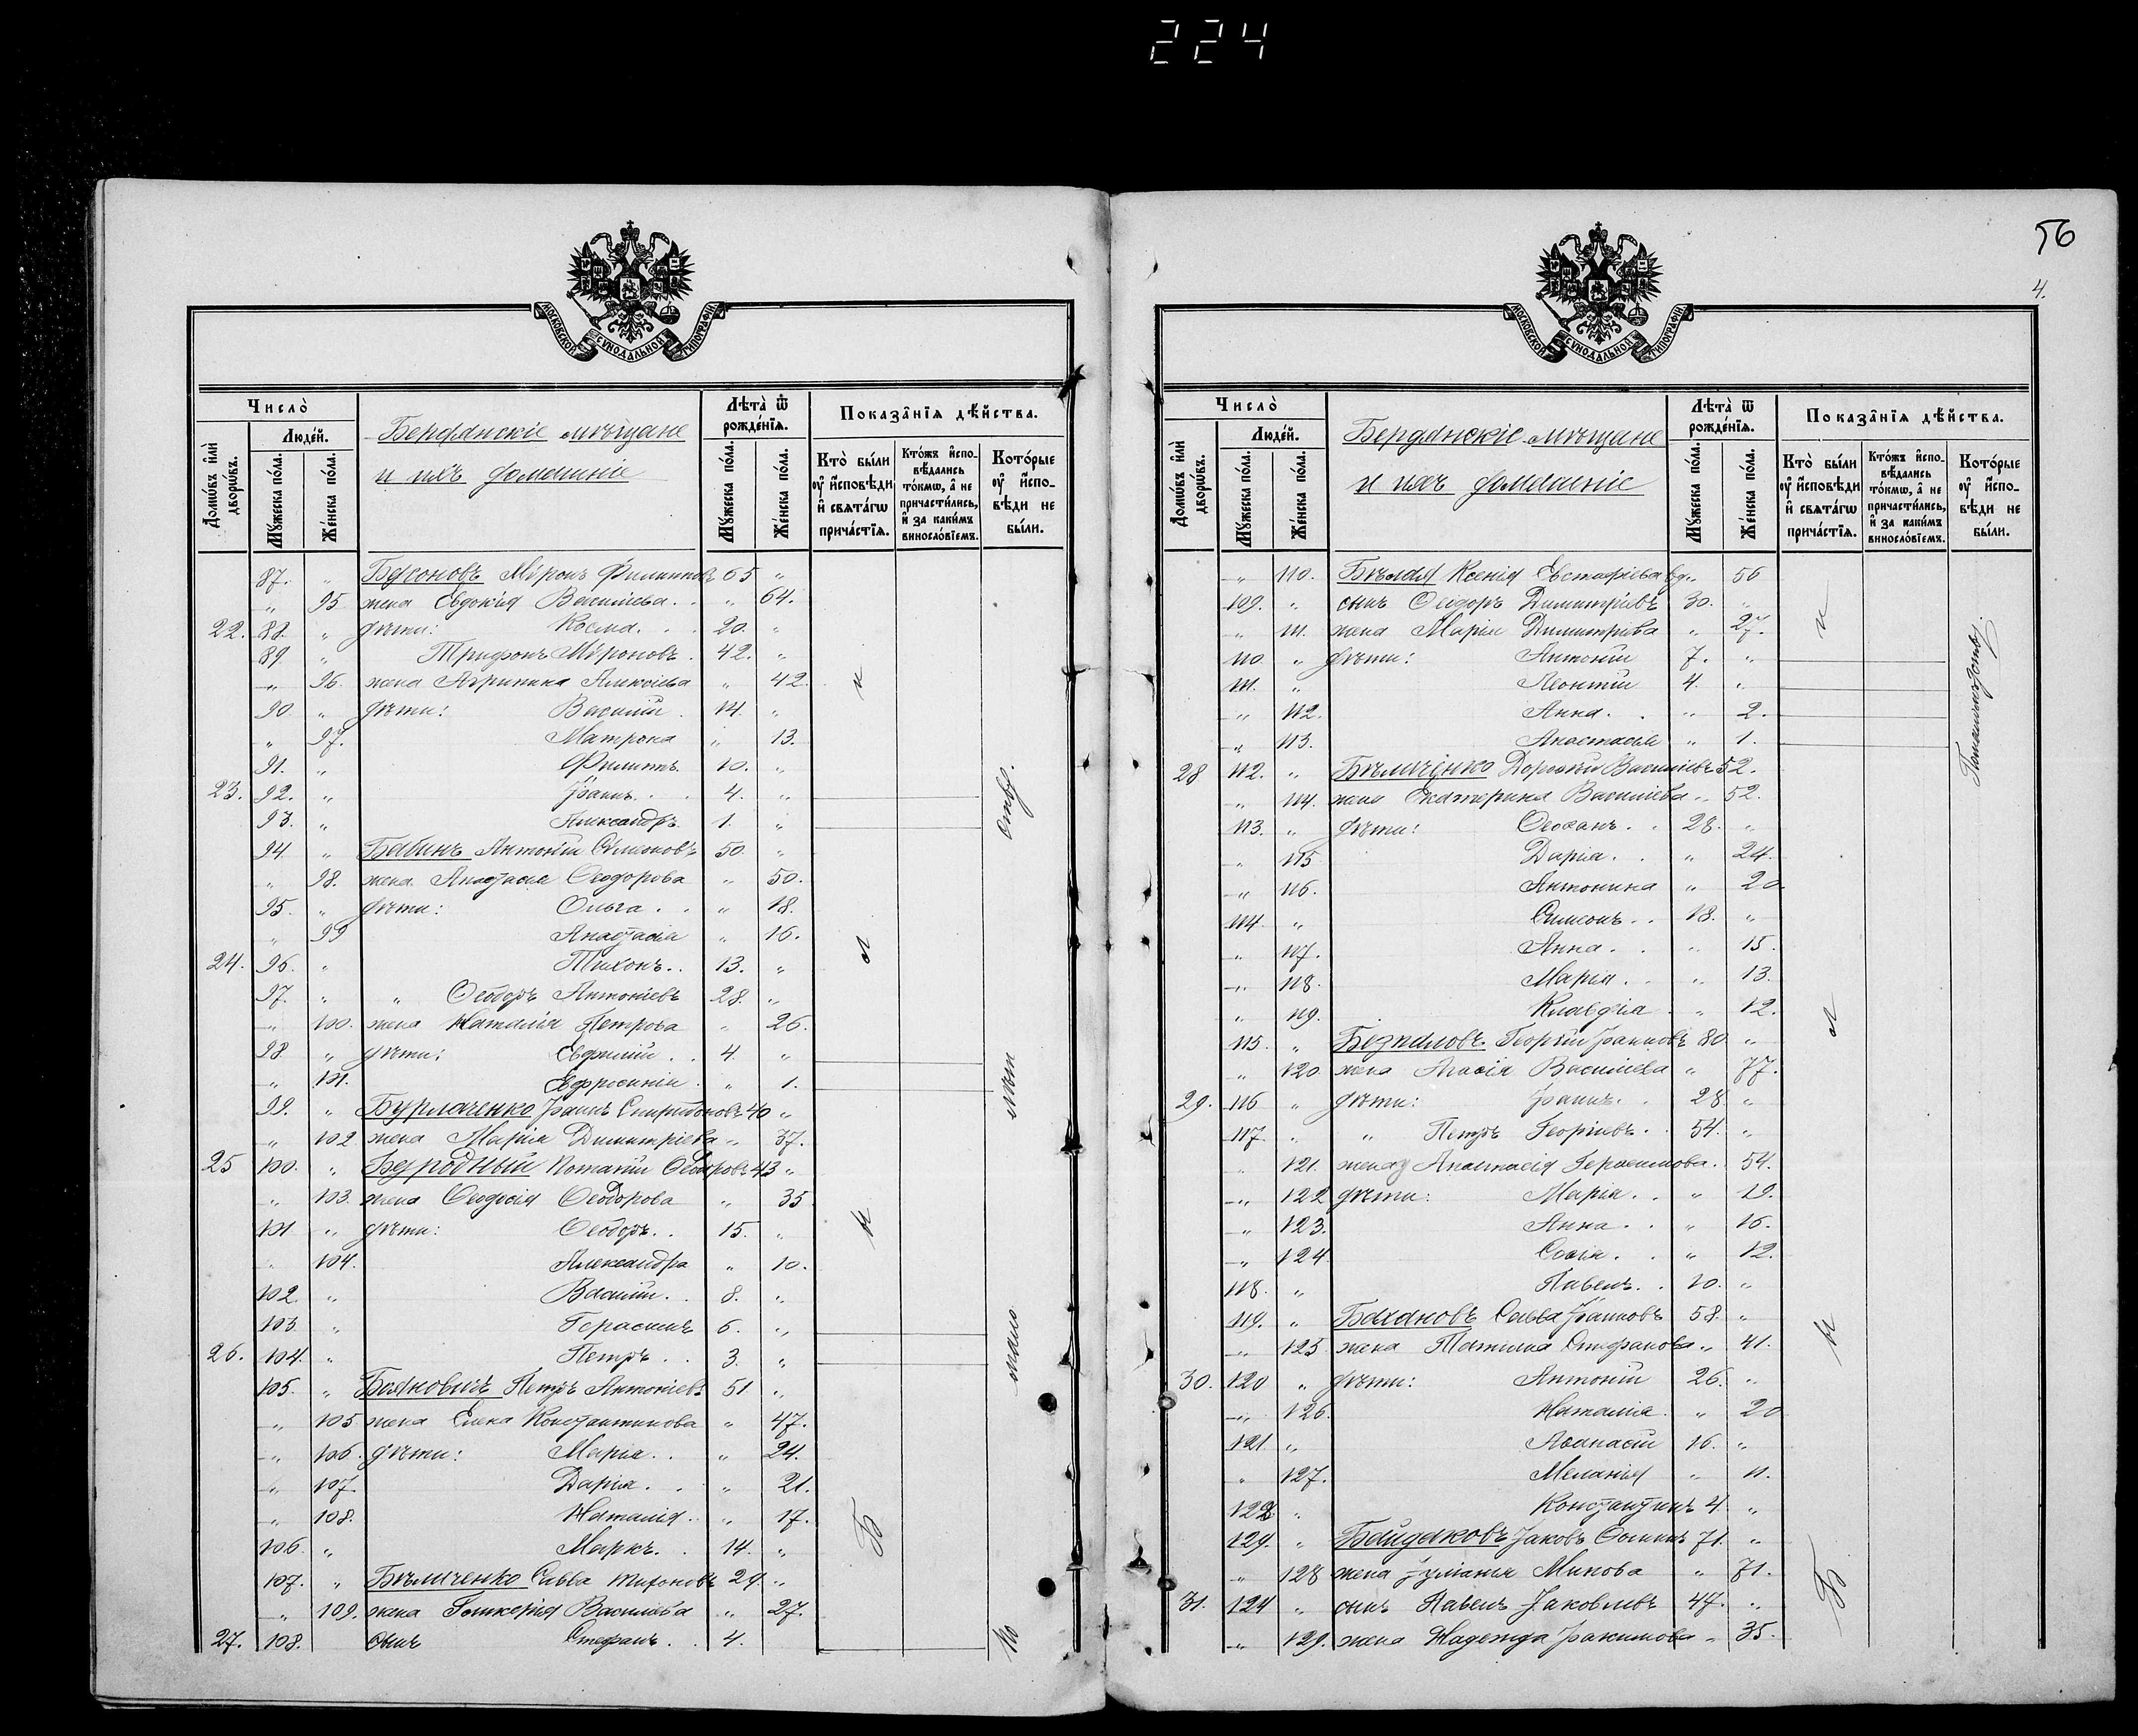 224
56
4.
МОСКОВСКОЙ СѴНОДАЛЬНОЙ ТИПОГРАФІИ
Число̀
Домѡ́въ и҆лѝ дворѡ́въ.
Люде́й.
Мꙋ́жеска по́ла.
Же́нска по́ла.
Бердянскіе мѣщане
и ихъ домашніе
Лѣта̀ ѿ рожде́нїѧ.
Мꙋ́жеска по́ла.
Же́нска по́ла.
Показа̑нїѧ дѣ́йства.
Кто̀ бы́ли оу҆ и҆сповѣди и҆ свѧта́гѡ прича́стїѧ.
Кто́жъ и҆сповѣ́дались то́кмѡ, а҆ не причасти́лись, и҆ за каки́мъ винословїемъ.
Кото́рые оу҆ и҆сповѣди не бы́ли.
87. " Мѵронъ Филипповъ 65 "
" 95 жена Евдокія Василіева . . " 64.
22. 88. " дѣти: Косма. . . 20. "
89. " Трифонъ Мѵроновъ . 42. "
" 96. жена Агрипина Алексіева " 42.
90 " дѣти: Василій . 14. "
" 97. Матрона " 13.
91. " Филиппъ. 10. "
23. 92. " Іоаннъ. . . 4. "
93. " Александръ. 1. "
94. " Бабинъ Антоній Симоновъ 50. "
" 98. жена Анастасія Ѳеодорова " 50.
95. " дѣти: Ольга . . " 18.
" 99 Анастасія " 16.
24. 96. " Тихонъ. . 13. "
97. " " Ѳеодоръ Антоніевъ 28. "
" 100. жена Наталія Петрова " 26.
98 " дѣти: Евфимій . . 4. "
" 101. Евфросинія . " 1.
99. " Бурлаченко Іоаннъ Спиридоновъ 40 "
" 102 жена Марія Димитріева " 37.
25 100. " Потапій Ѳеодоровъ 43 "
" 103. жена Ѳеодосія Ѳеодорова " 35
101 " дѣти: Ѳеодоръ. . 15. "
" 104. Александра " 10.
102. " Василій. . 8. "
103. " Герасимъ 6. "
26. 104. " Петръ. . . 3. "
105. " Баяновичъ Петръ Антоніевъ 51 "
" 105 жена Елена Константинова " 47.
" 106. дѣти: Марія. . " 24.
" 107. Дарія. . . " 21.
" 108. Наталія. . " 17.
106. " Маркъ. . 14. "
107. " Бѣличенко Савва 29. "
" 109. жена Гликерія Василіева " 27.
27. 108. сынъ Стефанъ. . 4.
Число̀
Домѡ́въ и҆лѝ дворѡ́въ.
Люде́й.
Мꙋ́жеска по́ла.
Же́нска по́ла.
Бердянскіе мѣщане
и ихъ домашніе
Лѣта̀ ѿ рожде́нїѧ.
Мꙋ́жеска по́ла.
Же́нска по́ла.
Показа̑нїѧ дѣ́йства.
Кто̀ бы́ли оу҆ и҆сповѣди и҆ свѧта́гѡ прича́стїѧ.
Кто́жъ и҆сповѣ́дались то́кмѡ, а҆ не причасти́лись, и҆ за каки́мъ винословїемъ.
Кото́рые оу҆ и҆сповѣди не бы́ли.
" 110. Бѣлая Ксенія Евстафіева вд. " 56
109. " сынъ Ѳеодоръ Димитріевъ 30. "
" 111. жена Марія Димитріева " 27.
110. " дѣти: Антоній 7. "
111. " Леонтій 4. "
" 112. Анна. . " 2.
" 113. Анастасія " 1.
28 112. " Бѣличенко Дороѳей Василіевъ 52.
" 114. жена Екатерина Василіева " 52.
113. " дѣти: Ѳеофанъ. . 28. "
" 115 Дарія. . " 24.
" 116. Антонина " 20.
114. " Симеонъ. . 18. "
" 117. Анна. . " 15.
" 118. Марія. . " 13.
" 119. Клавдія . " 12.
115. " Георгій Іоанновъ 80. "
" 120 жена Агаѳія Василіева " 77.
29. 116 " дѣти: Іоаннъ. . 28 "
117. " " Петръ Георгіевъ. . 54. "
" 121. жена Анастасія Герасимова. . 54.
" 122 дѣти: Марія. . " 19.
" 123. Анна. . " 16.
" 124 Софія. . " 12.
118. " Павелъ. . 10. "
119. " Бахановъ Савва Іоанновъ 58. "
" 125 жена Татіана Стефанова " 41.
30. 120 " дѣти: Антоній 26. "
" 126. Наталія. " 20
121 " Аѳанасій 16. "
" 127. Меланія " 11.
122 " Константинъ 4. "
129. " Байдаковъ Іаковъ Ѳоминъ 71. "
" 128 жена Іуліанія Минова " 71.
31. 124 " сынъ Павелъ Іаковлевъ 47. "
" 129. жена Надежда Іоакимова " 35.